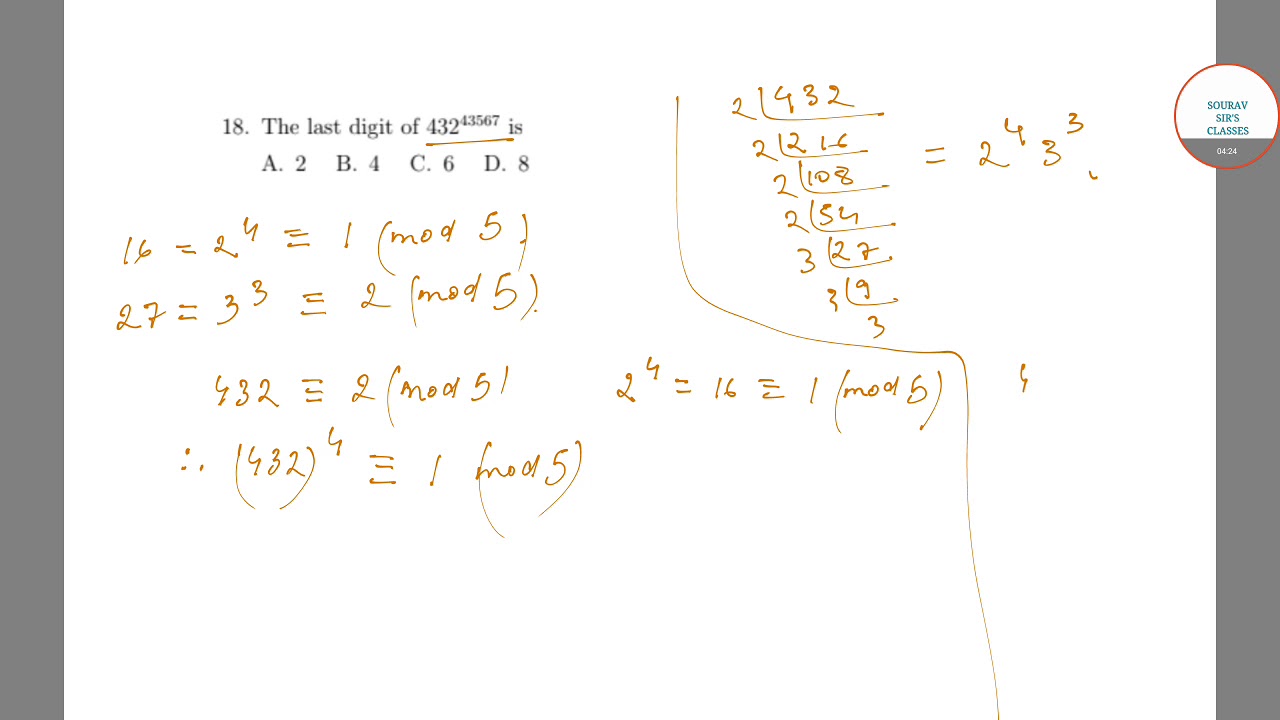 18. The last digit of 432^43567 is
A. 2 B. 4 C. 6 D. 8
16 = 2^4 ≡ 1 (mod 5)
27 = 3^3 ≡ 2 (mod 5).
432 ≡ 2 (mod 5)
2^4 = 16 ≡ 1 (mod 5)
∴ (432)^4 ≡ 1 (mod 5)
2 | 432
2 | 216
2 | 108
2 | 54
3 | 27
3 | 9
3
= 2^4 3^3
4
SOURAV
SIR'S
CLASSES
04:24